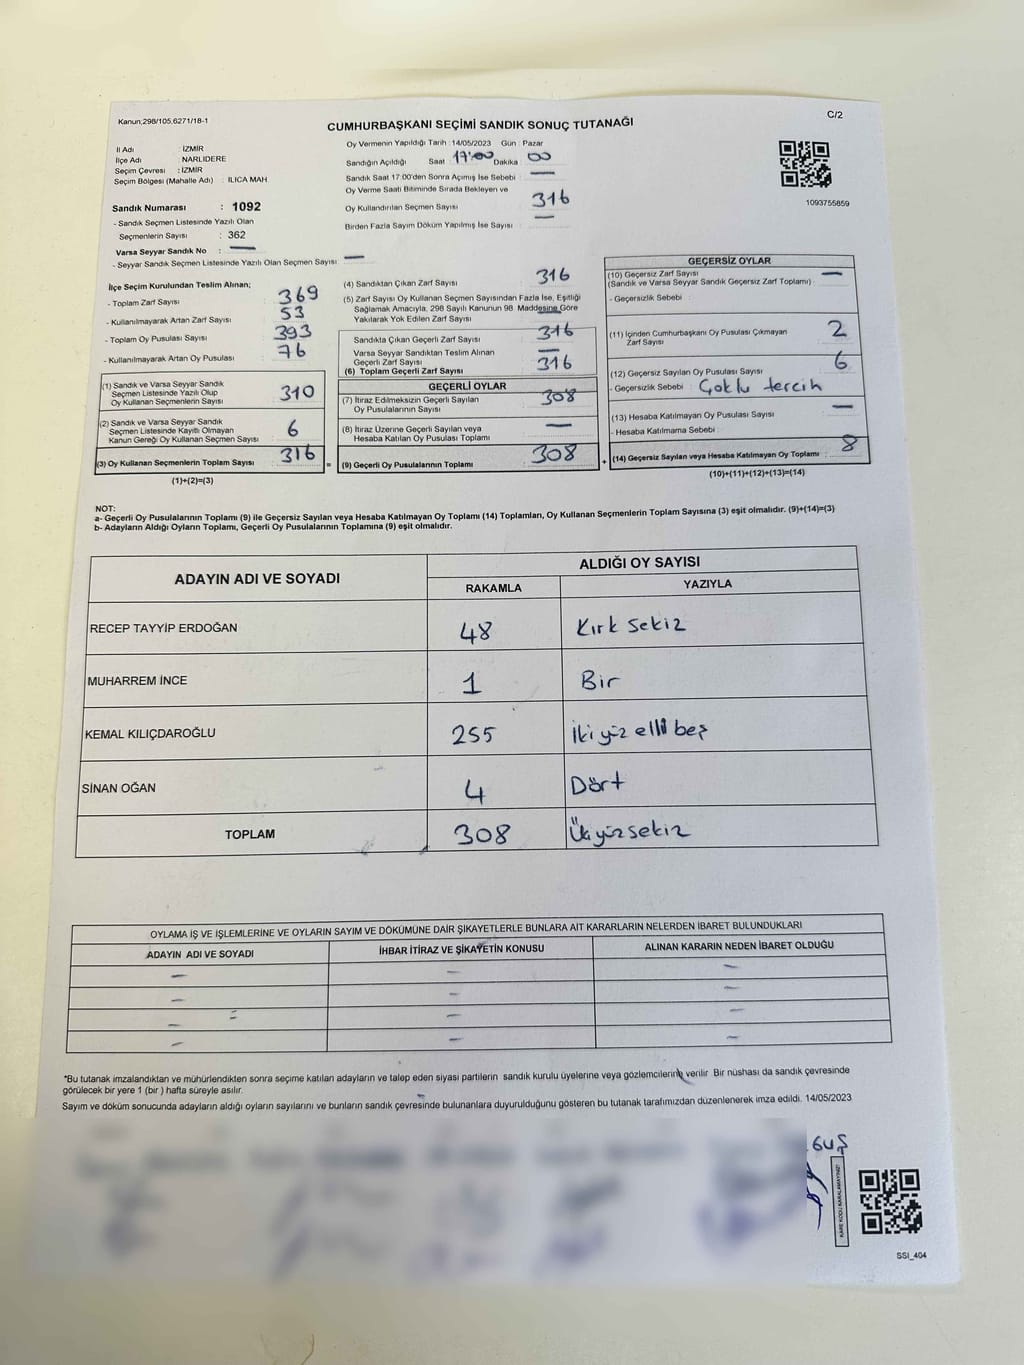 Kanun,298/105,6271/18-1
C/2
CUMHURBAŞKANI SEÇİMİ SANDIK SONUÇ TUTANAĞI
İl Adı : İZMİR
İlçe Adı : NARLIDERE
Seçim Çevresi : İZMİR
Seçim Bölgesi (Mahalle Adı) : ILICA MAH.
Sandık Numarası : 1092
- Sandık Seçmen Listesinde Yazılı Olan
Seçmenlerin Sayısı : 362
Varsa Seyyar Sandık No : —
- Seyyar Sandık Seçmen Listesinde Yazılı Olan Seçmen Sayısı : —
Oy Vermenin Yapıldığı Tarih : 14/05/2023 Gün : Pazar
Sandığın Açıldığı Saat 17:00 Dakika 00
Sandık Saat 17:00'den Sonra Açımış İse Sebebi : —
Oy Verme Saati Bitiminde Sırada Bekleyen ve
Oy Kullandırılan Seçmen Sayısı 316
Birden Fazla Sayım Döküm Yapılmış İse Sayısı : —
1093755859
İlçe Seçim Kurulundan Teslim Alınan;
- Toplam Zarf Sayısı 369
- Kullanılmayarak Artan Zarf Sayısı 53
- Toplam Oy Pusulası Sayısı 393
- Kullanılmayarak Artan Oy Pusulası 76
(1) Sandık ve Varsa Seyyar Sandık
Seçmen Listesinde Yazılı Olup
Oy Kullanan Seçmenlerin Sayısı 310
(2) Sandık ve Varsa Seyyar Sandık
Seçmen Listesinde Kayıtlı Olmayan
Kanun Gereği Oy Kullanan Seçmen Sayısı 6
(3) Oy Kullanan Seçmenlerin Toplam Sayısı 316
(1)+(2)=(3)
=
(4) Sandıktan Çıkan Zarf Sayısı 316
(5) Zarf Sayısı Oy Kullanan Seçmen Sayısından Fazla İse, Eşitliği
Sağlamak Amacıyla, 298 Sayılı Kanunun 98. Maddesine Göre
Yakılarak Yok Edilen Zarf Sayısı —
Sandıkta Çıkan Geçerli Zarf Sayısı 316
Varsa Seyyar Sandıktan Teslim Alınan
Geçerli Zarf Sayısı —
(6) Toplam Geçerli Zarf Sayısı 316
GEÇERLİ OYLAR
(7) İtiraz Edilmeksizin Geçerli Sayılan
Oy Pusulalarının Sayısı 308
(8) İtiraz Üzerine Geçerli Sayılan veya
Hesaba Katılan Oy Pusulası Toplamı —
(9) Geçerli Oy Pusulalarının Toplamı 308
+
GEÇERSİZ OYLAR
(10) Geçersiz Zarf Sayısı —
(Sandık ve Varsa Seyyar Sandık Geçersiz Zarf Toplamı)
- Geçersizlik Sebebi :
(11) İçinden Cumhurbaşkanı Oy Pusulası Çıkmayan
Zarf Sayısı 2
(12) Geçersiz Sayılan Oy Pusulası Sayısı 6
- Geçersizlik Sebebi : Çoklu tercih
(13) Hesaba Katılmayan Oy Pusulası Sayısı —
- Hesaba Katılmama Sebebi :
(14) Geçersiz Sayılan veya Hesaba Katılmayan Oy Toplamı : 8
(10)+(11)+(12)+(13)=(14)
NOT:
a- Geçerli Oy Pusulalarının Toplamı (9) ile Geçersiz Sayılan veya Hesaba Katılmayan Oy Toplamı (14) Toplamları, Oy Kullanan Seçmenlerin Toplam Sayısına (3) eşit olmalıdır. (9)+(14)=(3)
b- Adayların Aldığı Oyların Toplamı, Geçerli Oy Pusulalarının Toplamına (9) eşit olmalıdır.
ADAYIN ADI VE SOYADI
ALDIĞI OY SAYISI
RAKAMLA YAZIYLA
RECEP TAYYİP ERDOĞAN 48 Kırk sekiz
MUHARREM İNCE 1 Bir
KEMAL KILIÇDAROĞLU 255 İkiyüz elli beş
SİNAN OĞAN 4 Dört
TOPLAM 308 Üçyüzsekiz
OYLAMA İŞ VE İŞLEMLERİNE VE OYLARIN SAYIM VE DÖKÜMÜNE DAİR ŞİKAYETLERLE BUNLARA AİT KARARLARIN NELERDEN İBARET BULUNDUKLARI
ADAYIN ADI VE SOYADI İHBAR İTİRAZ VE ŞİKAYETİN KONUSU ALINAN KARARIN NEDEN İBARET OLDUĞU
— — —
— — —
— — —
— — —
*Bu tutanak imzalandıktan ve mühürlendikten sonra seçime katılan adayların ve talep eden siyasi partilerin sandık kurulu üyelerine veya gözlemcilerine verilir. Bir nüshası da sandık çevresinde
görülecek bir yere 1 (bir ) hafta süreyle asılır.
Sayım ve döküm sonucunda adayların aldığı oyların sayılarını ve bunların sandık çevresinde bulunanlara duyurulduğunu gösteren bu tutanak tarafımızdan düzenlenerek imza edildi. 14/05/2023
KARE KODU KARALAMAYINIZ!
SSI_404